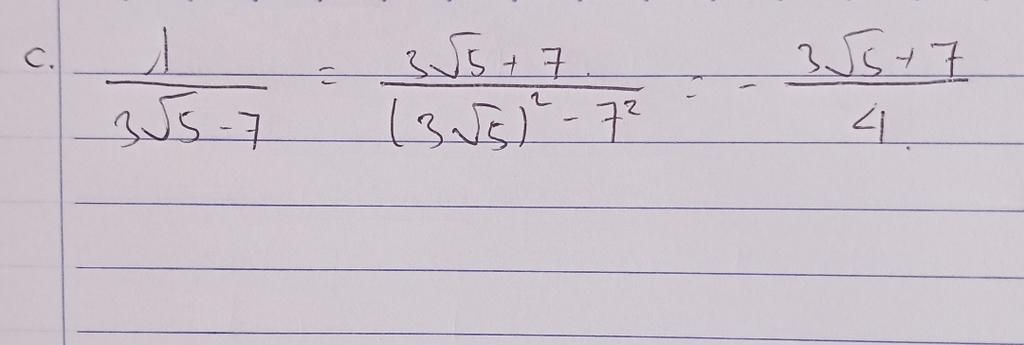 c. 1/(3√5-7) = (3√5+7)/((3√5)²-7²) = -(3√5+7)/4